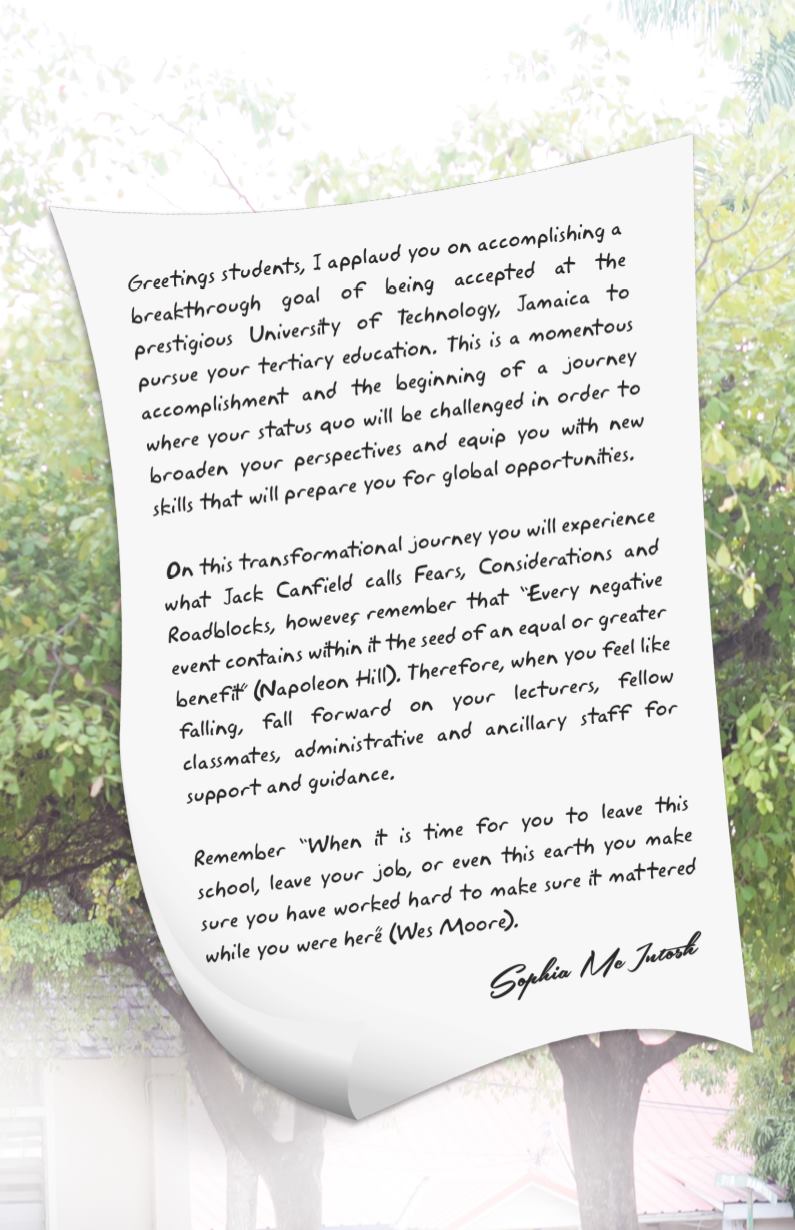 Greetings students, I applaud you on accomplishing a
breakthrough goal of being accepted at the
prestigious University of Technology, Jamaica to
pursue your tertiary education. This is a momentous
accomplishment and the beginning of a journey
where your status quo will be challenged in order to
broaden your perspectives and equip you with new
skills that will prepare you for global opportunities.
On this transformational journey you will experience
what Jack Canfield calls Fears, Considerations and
Roadblocks, however, remember that "Every negative
event contains within it the seed of an equal or greater
benefit" (Napoleon Hill). Therefore, when you feel like
falling, fall forward on your lecturers, fellow
classmates, administrative and ancillary staff for
support and guidance.
Remember "When it is time for you to leave this
school, leave your job, or even this earth you make
sure you have worked hard to make sure it mattered
while you were here" (Wes Moore).
Sophia Mc Intosh